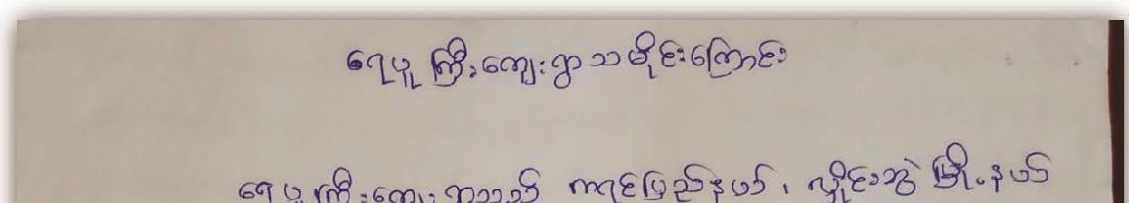 ရေပူကြီးကျေးရွာသမိုင်းကြောင်း
ရေပူကြီးကျေးရွာသည် ကရင်ပြည်နယ်၊ လှိုင်းဘွဲမြို့နယ်